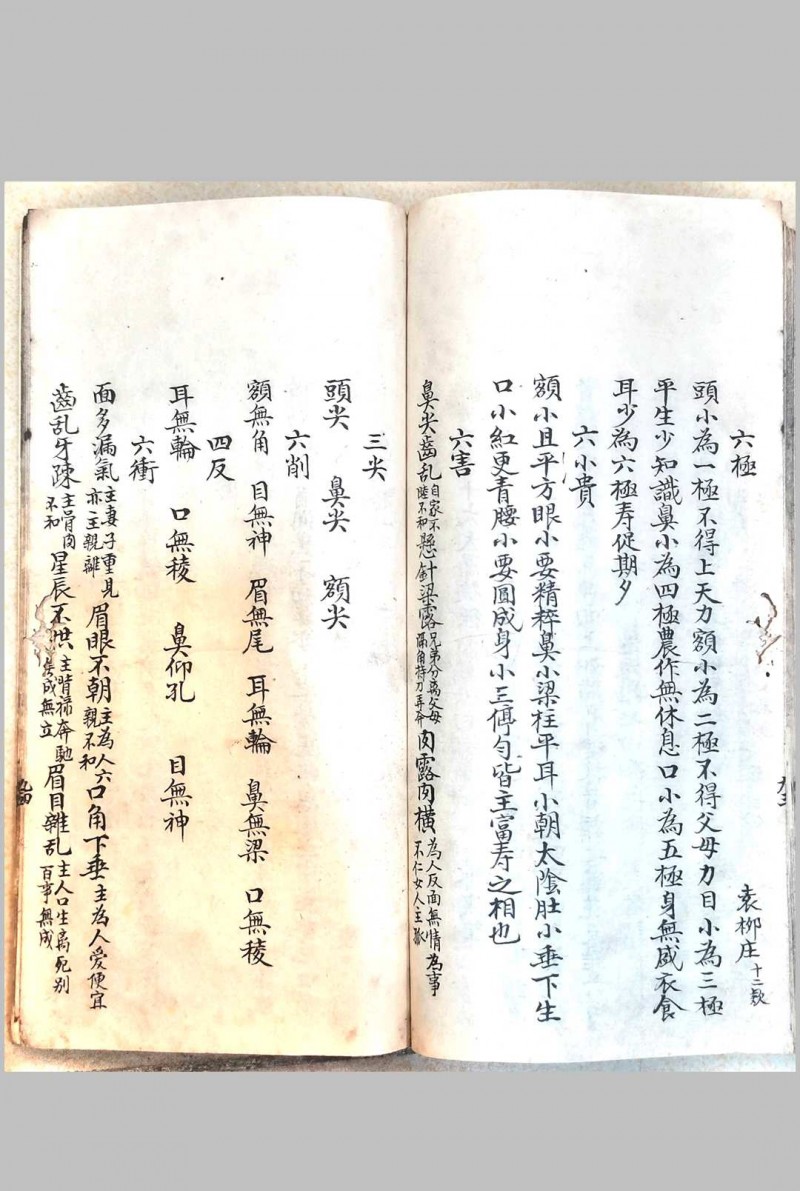 六極
袁柳庄十二款
頭小為一極不得上天力額小為二極不得父母力目小為三極
平生少知識鼻小為四極農作無休息口小為五極身無威衣食
耳少為六極寿促期夕
六小貴
額小且平方眼小要精粹鼻小梁柱平耳小朝太陰肚小垂下生
口小紅更青腰小要圓成身小三停勻皆主富寿之相也
六害
鼻尖齒乱自家不睦不和懸針梁露兄弟分离父母 肉露肉横為人反面無情為事不仁女人主
三尖
頭尖 鼻尖 額尖
六削
額無角 目無神 眉無尾 耳無輪 鼻無梁 口無稜
四反
耳無輪 口無稜 鼻仰孔 目無神
六衝
面多漏氣主妻子重見亦主親離眉眼不朝主為人六親不和口角下垂主為人愛便宜
齒乱牙疎主骨肉不和星辰不拱主 奔馳 成無立眉目雜乱主人口生离死别百事無成
九四